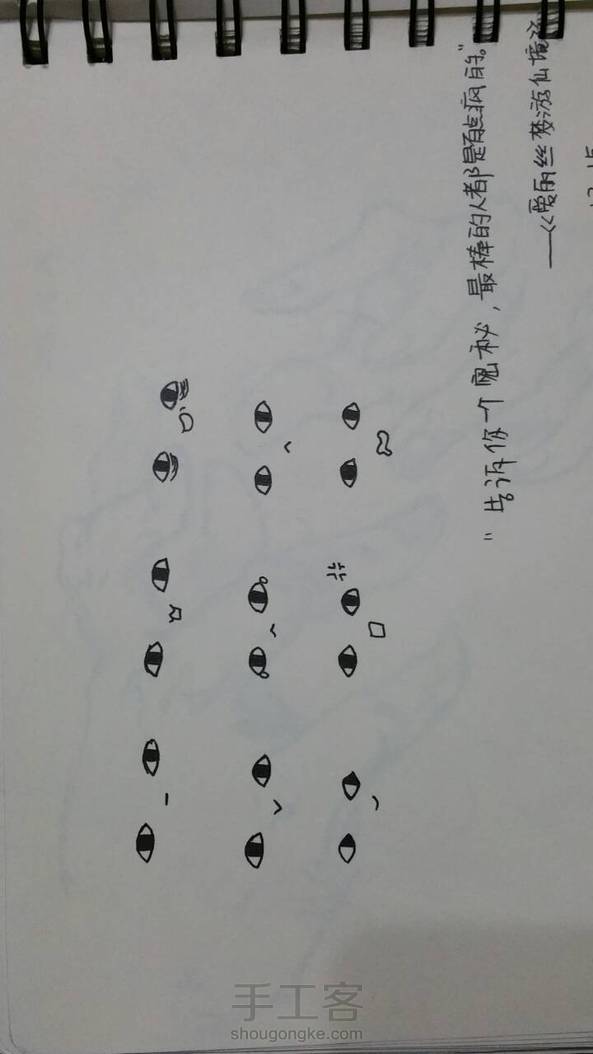 "告诉你一个秘,最棒的人都是有点病的。"
——《爱丽丝梦游仙境
手工客
shougongke.com